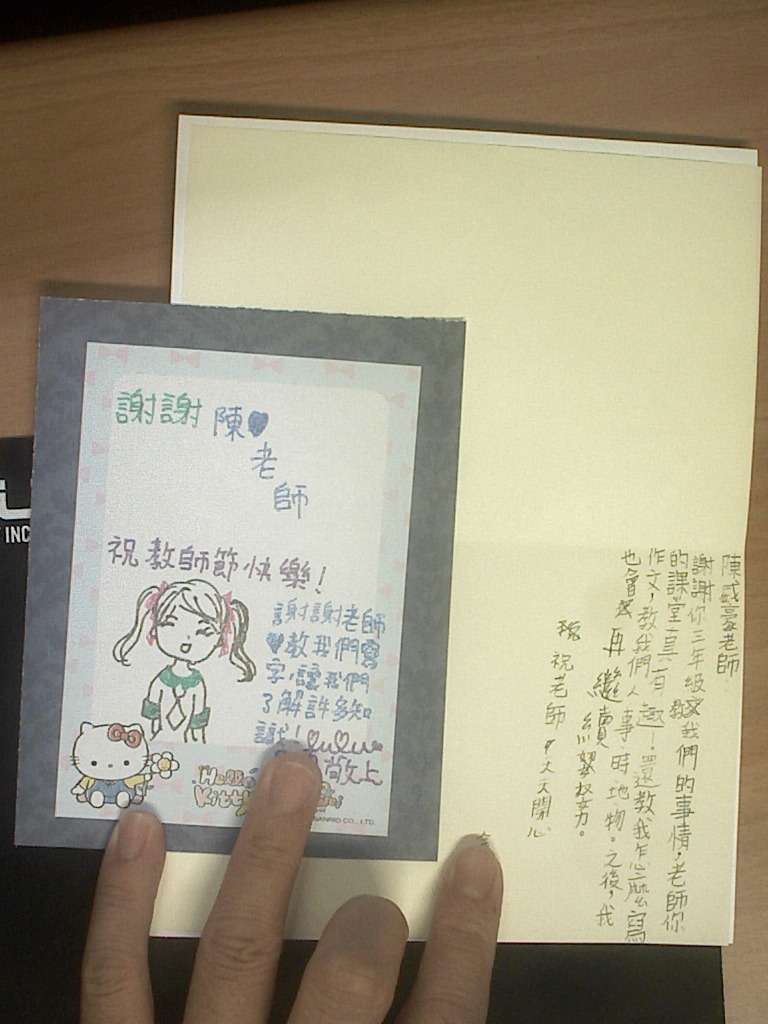 謝謝陳
老
師
祝教師節快樂！
謝謝老師
教我們寫
字，讓我們
了解許多知
識！
敬上
Hello
Kitty
SANRIO CO., LTD.
INC
老師
謝謝你三年級教我們的事情，老師你
的課堂真有趣！還教我怎麼寫
作文，教我們人、事、時、地、物。之後，我
也會 再繼續努力。
祝老師天天開心